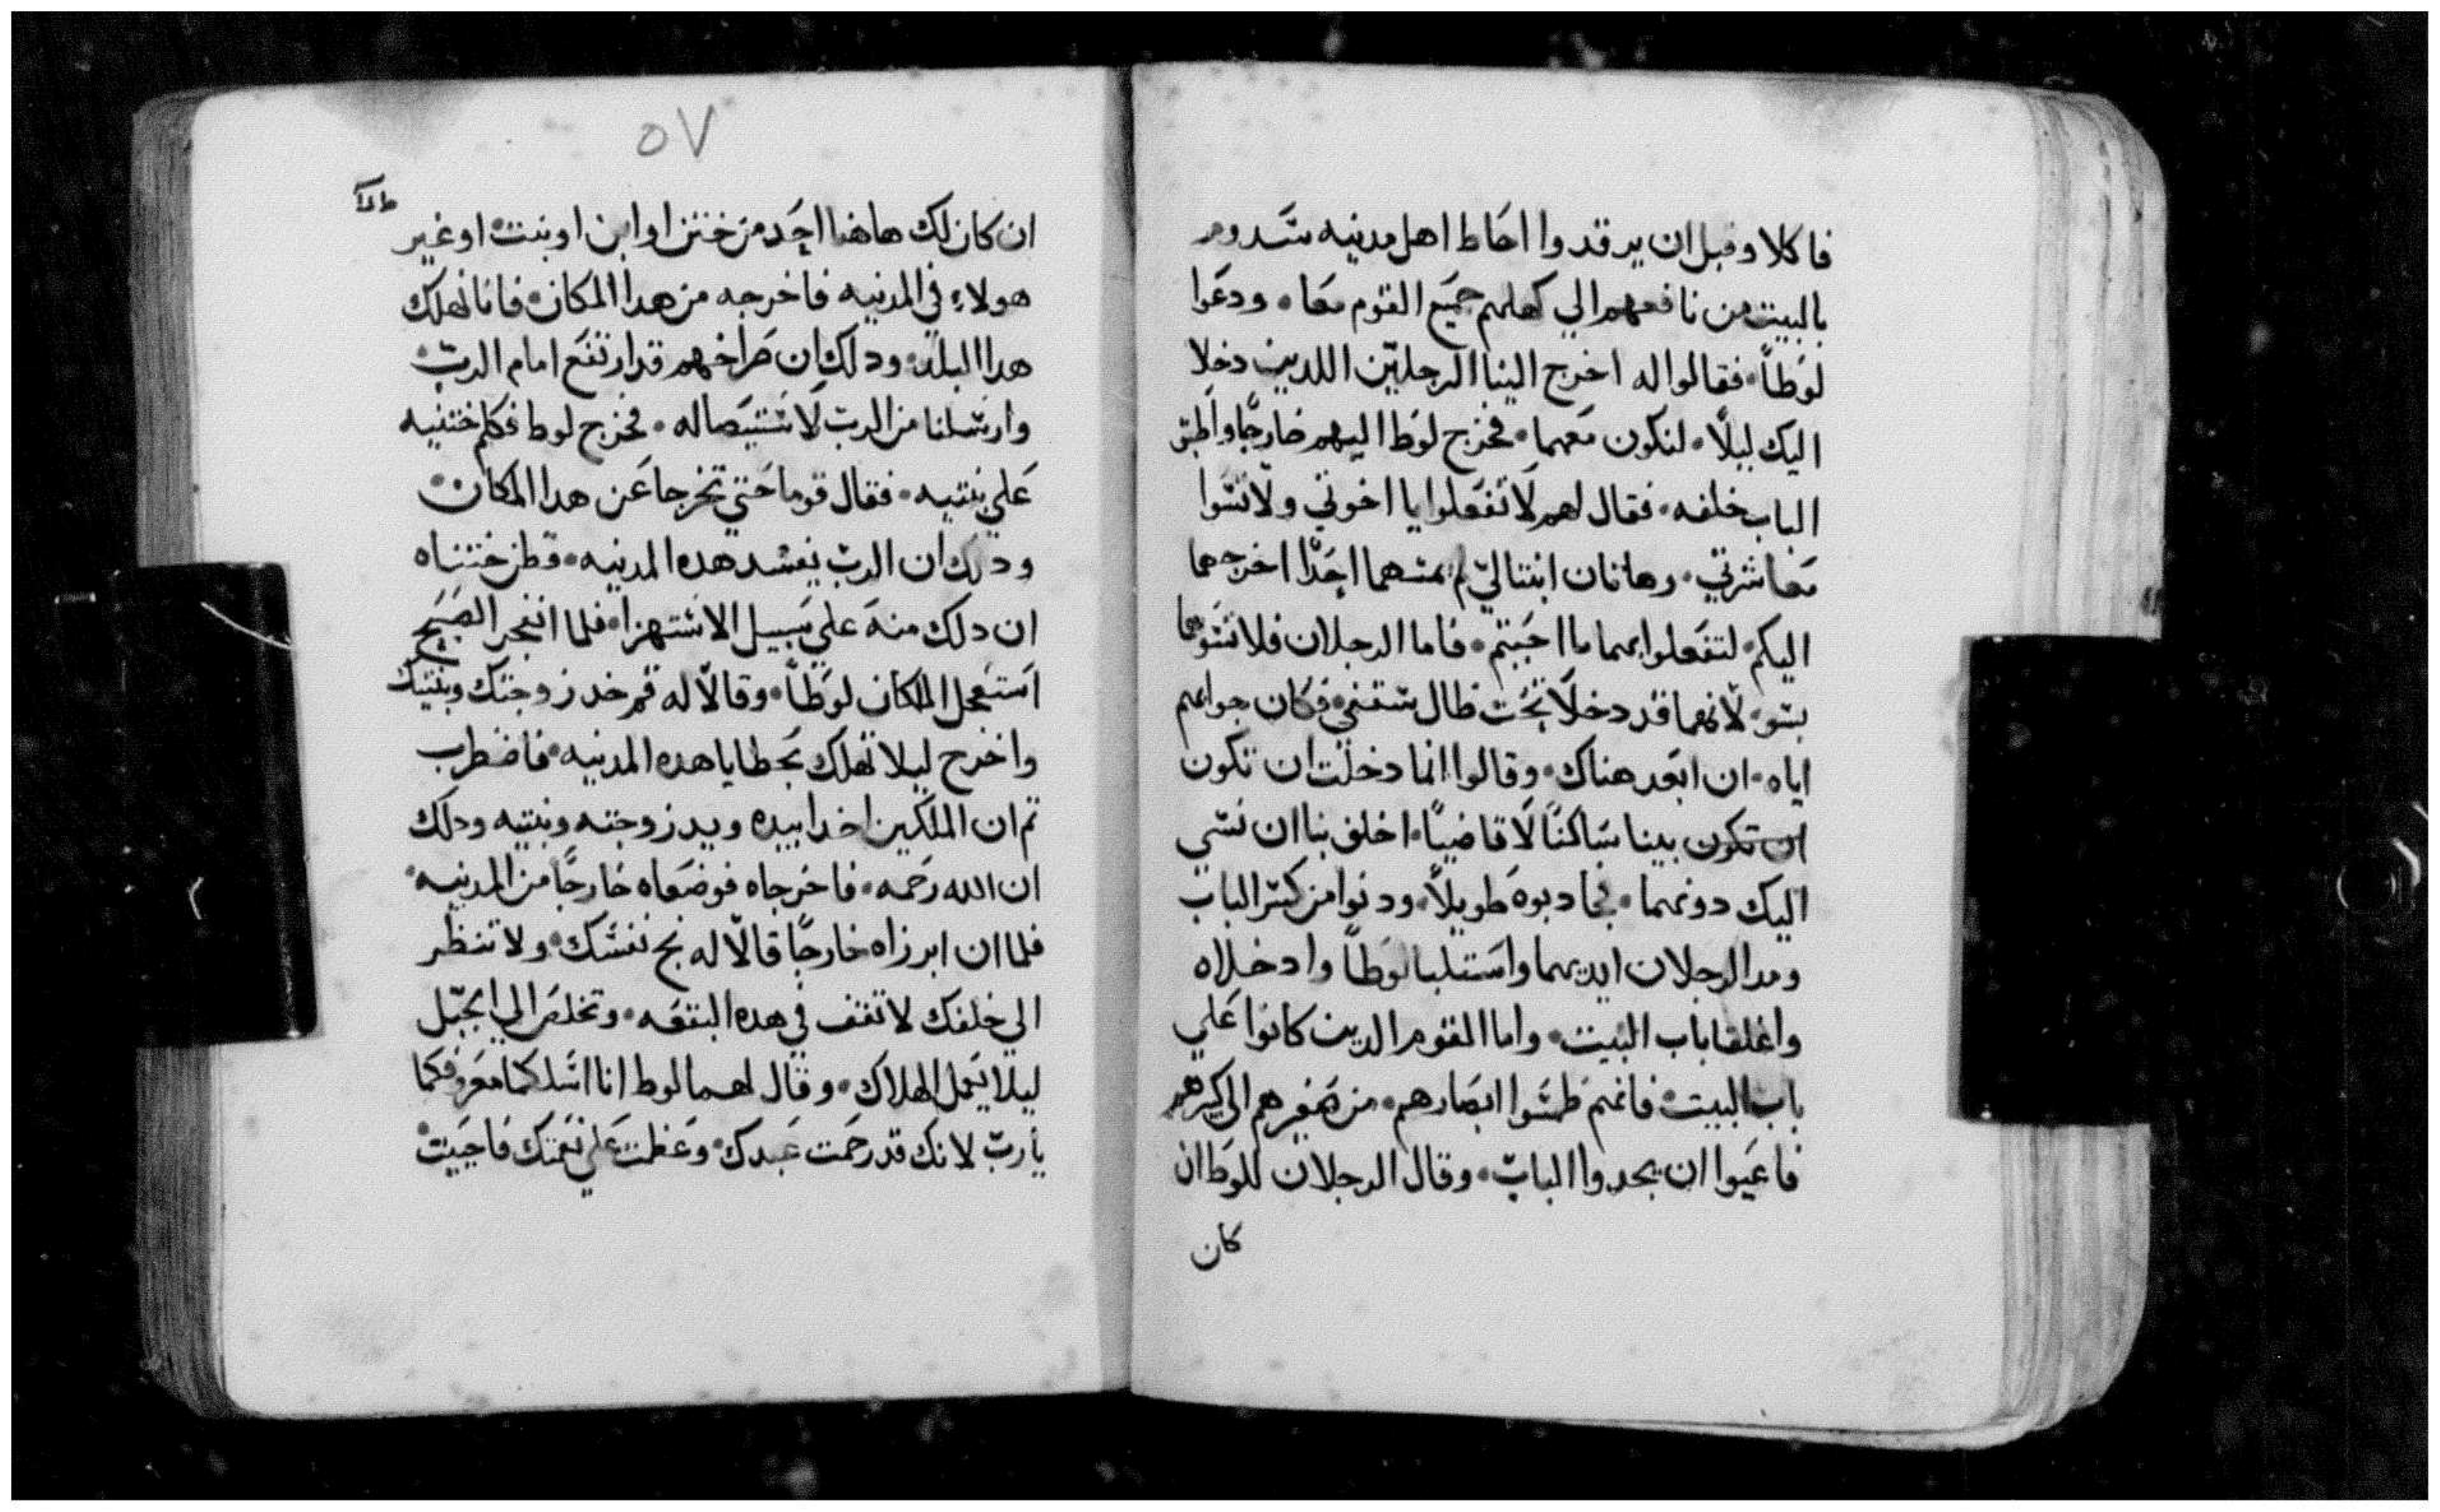 فاكلا وقبل ان يرقدوا احاط اهل مدينه سدوم
بالبيت من نافعهم الي كهلهم جميع القوم معا ۰ ودعوا
لوطاً ۰ فقالوا له اخرج الينا الرجلين اللدين دخلا
اليك ليلاً ۰ لنكون معهما ۰ فخرج لوطا اليهم خارجًا واطبق
الباب خلفه ۰ فقال لهم لا تفعلوا يا اخوتي ولا تسوا
معاشرتي ۰ وهاتان ابنتا لي لم يمسهما احدًا اخرجهما
اليكم ۰ لتفعلوا بهما ما احببتم ۰ فاما الرجلان فلا تسوهما
بسو ۰ لانهما قد دخلا تحت ظال سقفي ۰ فكان جوابهم
اياه ۰ ان ابعد هناك ۰ وقالوا انما دخلت ان تكون
ان تكون بينا ساكنًا لا قاضيًا ۰ اخلق بنا ان نسي
اليك دونهما ۰ فجادبوه طويلاً ۰ ودنوا من كسر الباب
ومد الرجلان ايديهما واستلبا لوطاً وادخلاه
واغلقا باب البيت ۰ واما القوم الدين كانوا علي
باب البيت ۰ فانهم طمسوا ابصارهم ۰ من صغيرهم الي كبيرهم
فاعيوا ان يجدوا الباب ۰ وقال الرجلان للوط ان
كان
٥٧
ان كان لك هاهنا احد من ختن او ابن او بنت ۰ او غير
هولاء في المدينه فاخرجه من هدا المكان ۰ فانا نهلك
هدا البلد ۰ ودلك ان صراخهم قد ارتفع امام الرب ۰
وارسلنا من الرب لاستيصاله ۰ فخرج لوط فكلم ختنيه
علي بنتيه ۰ فقال قوما حتي تخرجا عن هدا المكان ۰
ودلك ان الرب يفسد هده المدينه ۰ فظن ختناه
ان دلك منه علي سبيل الاستهزا ۰ فلما انفجر الصبح
استعجل الملكان لوطاً ۰ وقالا له قم خد زوجتك وبنتيك
واخرج ليلا تهلك بخطايا هده المدينه ۰ فاضطرب
تم ان الملكين اخدا بيده ويد زوجته وبنتيه ودلك
ان الله رحمه ۰ فاخرجاه فوضعاه خارجًا من المدينه ۰
فلما ان ابرزاه خارجًا قالا له نج نفسك ۰ ولا تنظر
الي خلفك لا تقف في هده البقعه ۰ وتخلص الي الجبل
ليلا يعمل الهلاك ۰ وقال لهما لوط انا اسلكما معروفكما
يارب لانك قد رحمت عبدك ۰ وعظمت علي نعمتك فاحييت ۰